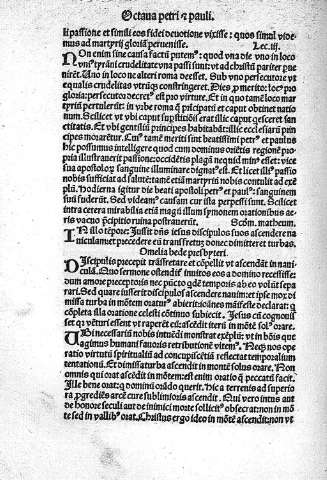 Octaua petri ⁊ pauli.
li passione et simili eos fidei deuotione vixisse: quos simul vide
mus ad martyrij gloriã peruenisse. Lec.iij.
NOn enim sine causa factũ putemꝰ: quod vna die vno in loco
vniꝰ tyrãni crudelitate vna passi sunt: vt ad christũ pariter pue
nirẽt. Uno in loco ne alteri roma deesset. Sub vno persecutore vt
equalis crudelitas vtrũqꝫ constringeret. Dies ꝓ merito: locꝰ ꝓ
gloria: persecutor decretꝰ est pro virtute. Et in quo tamẽ loco mar
tyriũ pertulerũt: in vrbe roma q̃ principatũ et caput obtinet natio
num. Scilicet vt vbi caput suꝑstitiõis erat illic caput qesceret san
ctitatis. Et vbi gentiliũ principes habitabãt: illic ecclesiarũ prin
cipes morarẽtur. Cuiꝰ tamẽ meriti sint beatissimi petrꝰ et paulus
hic possumus intelligere quod cum dominus oriẽtis regionẽ pro
pria illustrauerit passione: occidẽtis plagã nequid minꝰ esset: vice
sua apostoloꝝ sanguine illuminare dignatꝰ est. Et licet illiꝰ passio
nobis sufficiat ad salutẽ: tamẽ etiã martyriũ nobis contulit ad exẽ
plũ. Hodierna igitur die beati apostoli petrꝰ et paulꝰ: sanguinem
suũ fuderũt. Sed videamꝰ causam cur ista perpessi sunt. Scilicet
intra cetera mirabilia etiã magũ illum symonem orationibus ae
ris vacuo p̃cipitio ruina postrauerũt. Scõm. matheum.
IN illo tẽpore: Iussit dñs iesus discipulos suos ascendere na
uiculam et precedere eũ trans fretuꝫ donec dimitteret turbas.
Omelia bede presbyteri.
DIscipulis precepit trãsfretare et cõpellit vt ascendãt in naui
culã. Quo sermone ostenditꝰ inuitos eos a domino recessisse:
dum amore preceptoris nec pũcto qdẽ temporis ab eo volũt sepa
rari. Sed quare iusserit discipulos ascendere nauim: et ipse mox di
missa turba in mõtem oraturꝰ abierit: ioãnes mãifeste declarat: q
cõpleta illa oratione celesti cõtinuo subiecit. Iesus cũ cognouis
set qꝛ vẽturi essent vt raperẽt eũ: ascẽdit iterũ in mõtẽ solꝰ orare.
UBi necessariũ nobis intuẽdi monstrat exẽplũ: vt in bõis que
agimus humani fauoris retributionẽ vitemꝰ. Neqꝫ nos ope
ratio virtutũ spiritualiũ ad concupiscẽtiã reflectat temporalium
tentationũ. Et dimissa turba ascendit in montẽ solus orare. Non
omnis qui orat ascẽdit in mõtem: est enim oratio q̃ peccatũ facit.
Ille bene orat: q dominũ orãdo querit. Hic a terrenis ad superio
ra ꝓgrediẽs arcẽ cure sublimioris ascendit. Qui vero intus aut
de honore seculi aut de inimici morte sollicitꝰ obsecrat: non in mõ
te sed in vallibꝰ orat. Christus ergo ideo in mõtẽ ascendit: non vt